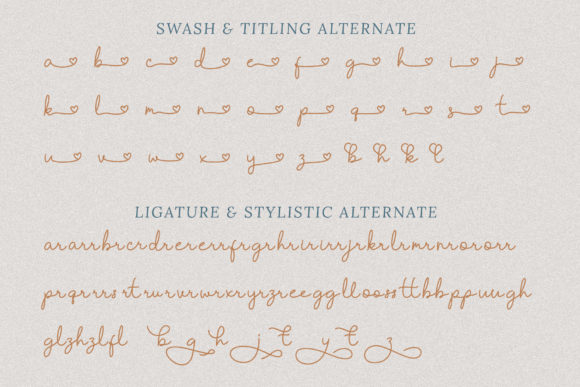 SWASH & TITLING ALTERNATE
a b c d e f g h i j
k l m n o p q r s t
u v w x y z b h k l
LIGATURE & STYLISTIC ALTERNATE
ararrbrcrdrererrfrgrhrirırjrkrlrmrnrororr
prqrrrsrtrurvrwrxryrzreegglloossttbbppuugh
glzhzlfl b g h j t y t z